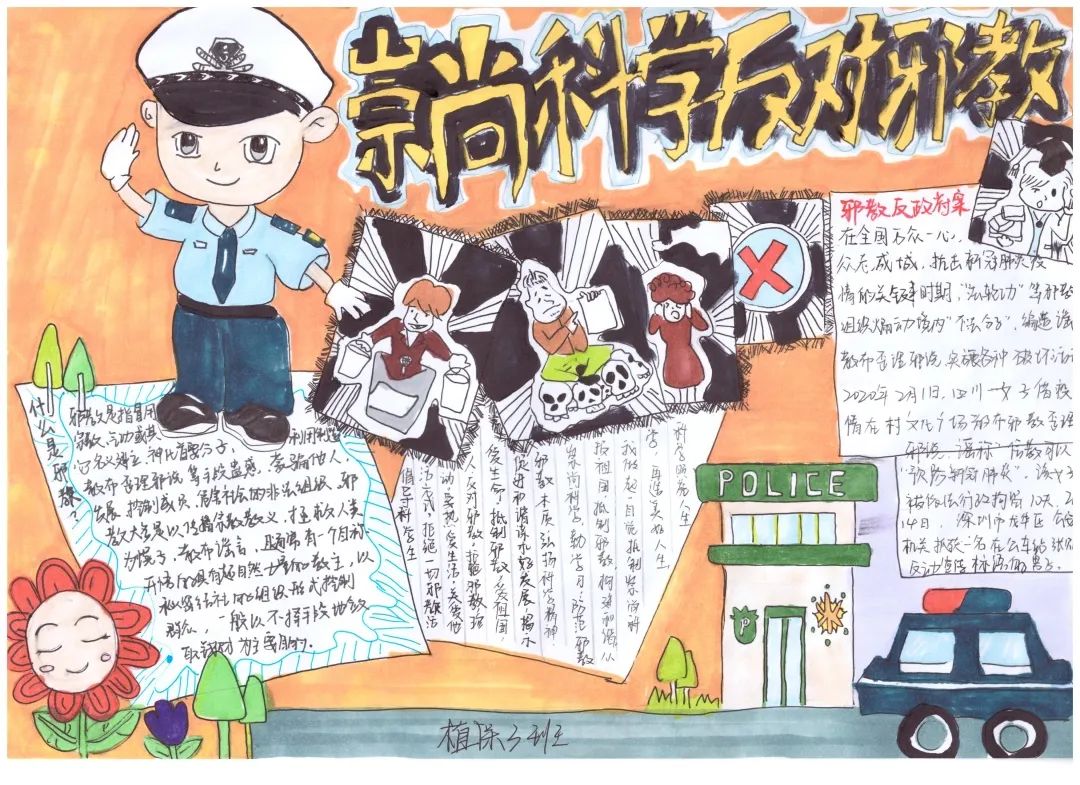 崇尚科学反对邪教
什么是邪教?
邪教是指冒用
宗教、气功或其
它名义建立,神化首要分子,利用制造
散布歪理邪说等手段蛊惑、蒙骗他人
发展、控制成员,危害社会的非法组织。邪
教大多是以传播宗教教义、拯救人类
为幌子,散布谣言,且通常有一个自称
开悟的具有超自然力量的教主,以
秘密结社的组织形式控制
群众,一般以不择手段地敛
取钱财为主要目的。
科学照亮人生
学,再造美好人生
我做起,自觉抵制崇尚科
反祖国抵制邪教构建和谐从
崇尚科学,勤学习,防范邪教
邪教本质,弘扬科学精神,
促进和谐请求好发展揭示
爱生命,抵制邪教,爱祖国
人反对邪教,拒绝邪教,珍
动,要热爱生活,关爱他
法方式,拒绝一切邪教活
倡导科学生
邪教反政府案
在全国万众一心,
众志成城,抗击新冠肺炎疫
情的关键时期,“法轮功”等邪教
组织煽动境内“不法分子”,编造谣
散布歪理邪说,实施各种破坏活动
2020年2月1日,四川一女子借疫
情在村文化广场散布邪教歪理
邪说,谣称“信教可以
“预防新冠肺炎”,该女子
被依法行政拘留10天,2
14日,深圳市龙华区公安
机关抓获一名在公车站张贴
反动宣传标语的男子。
POLICE
P
植保3班